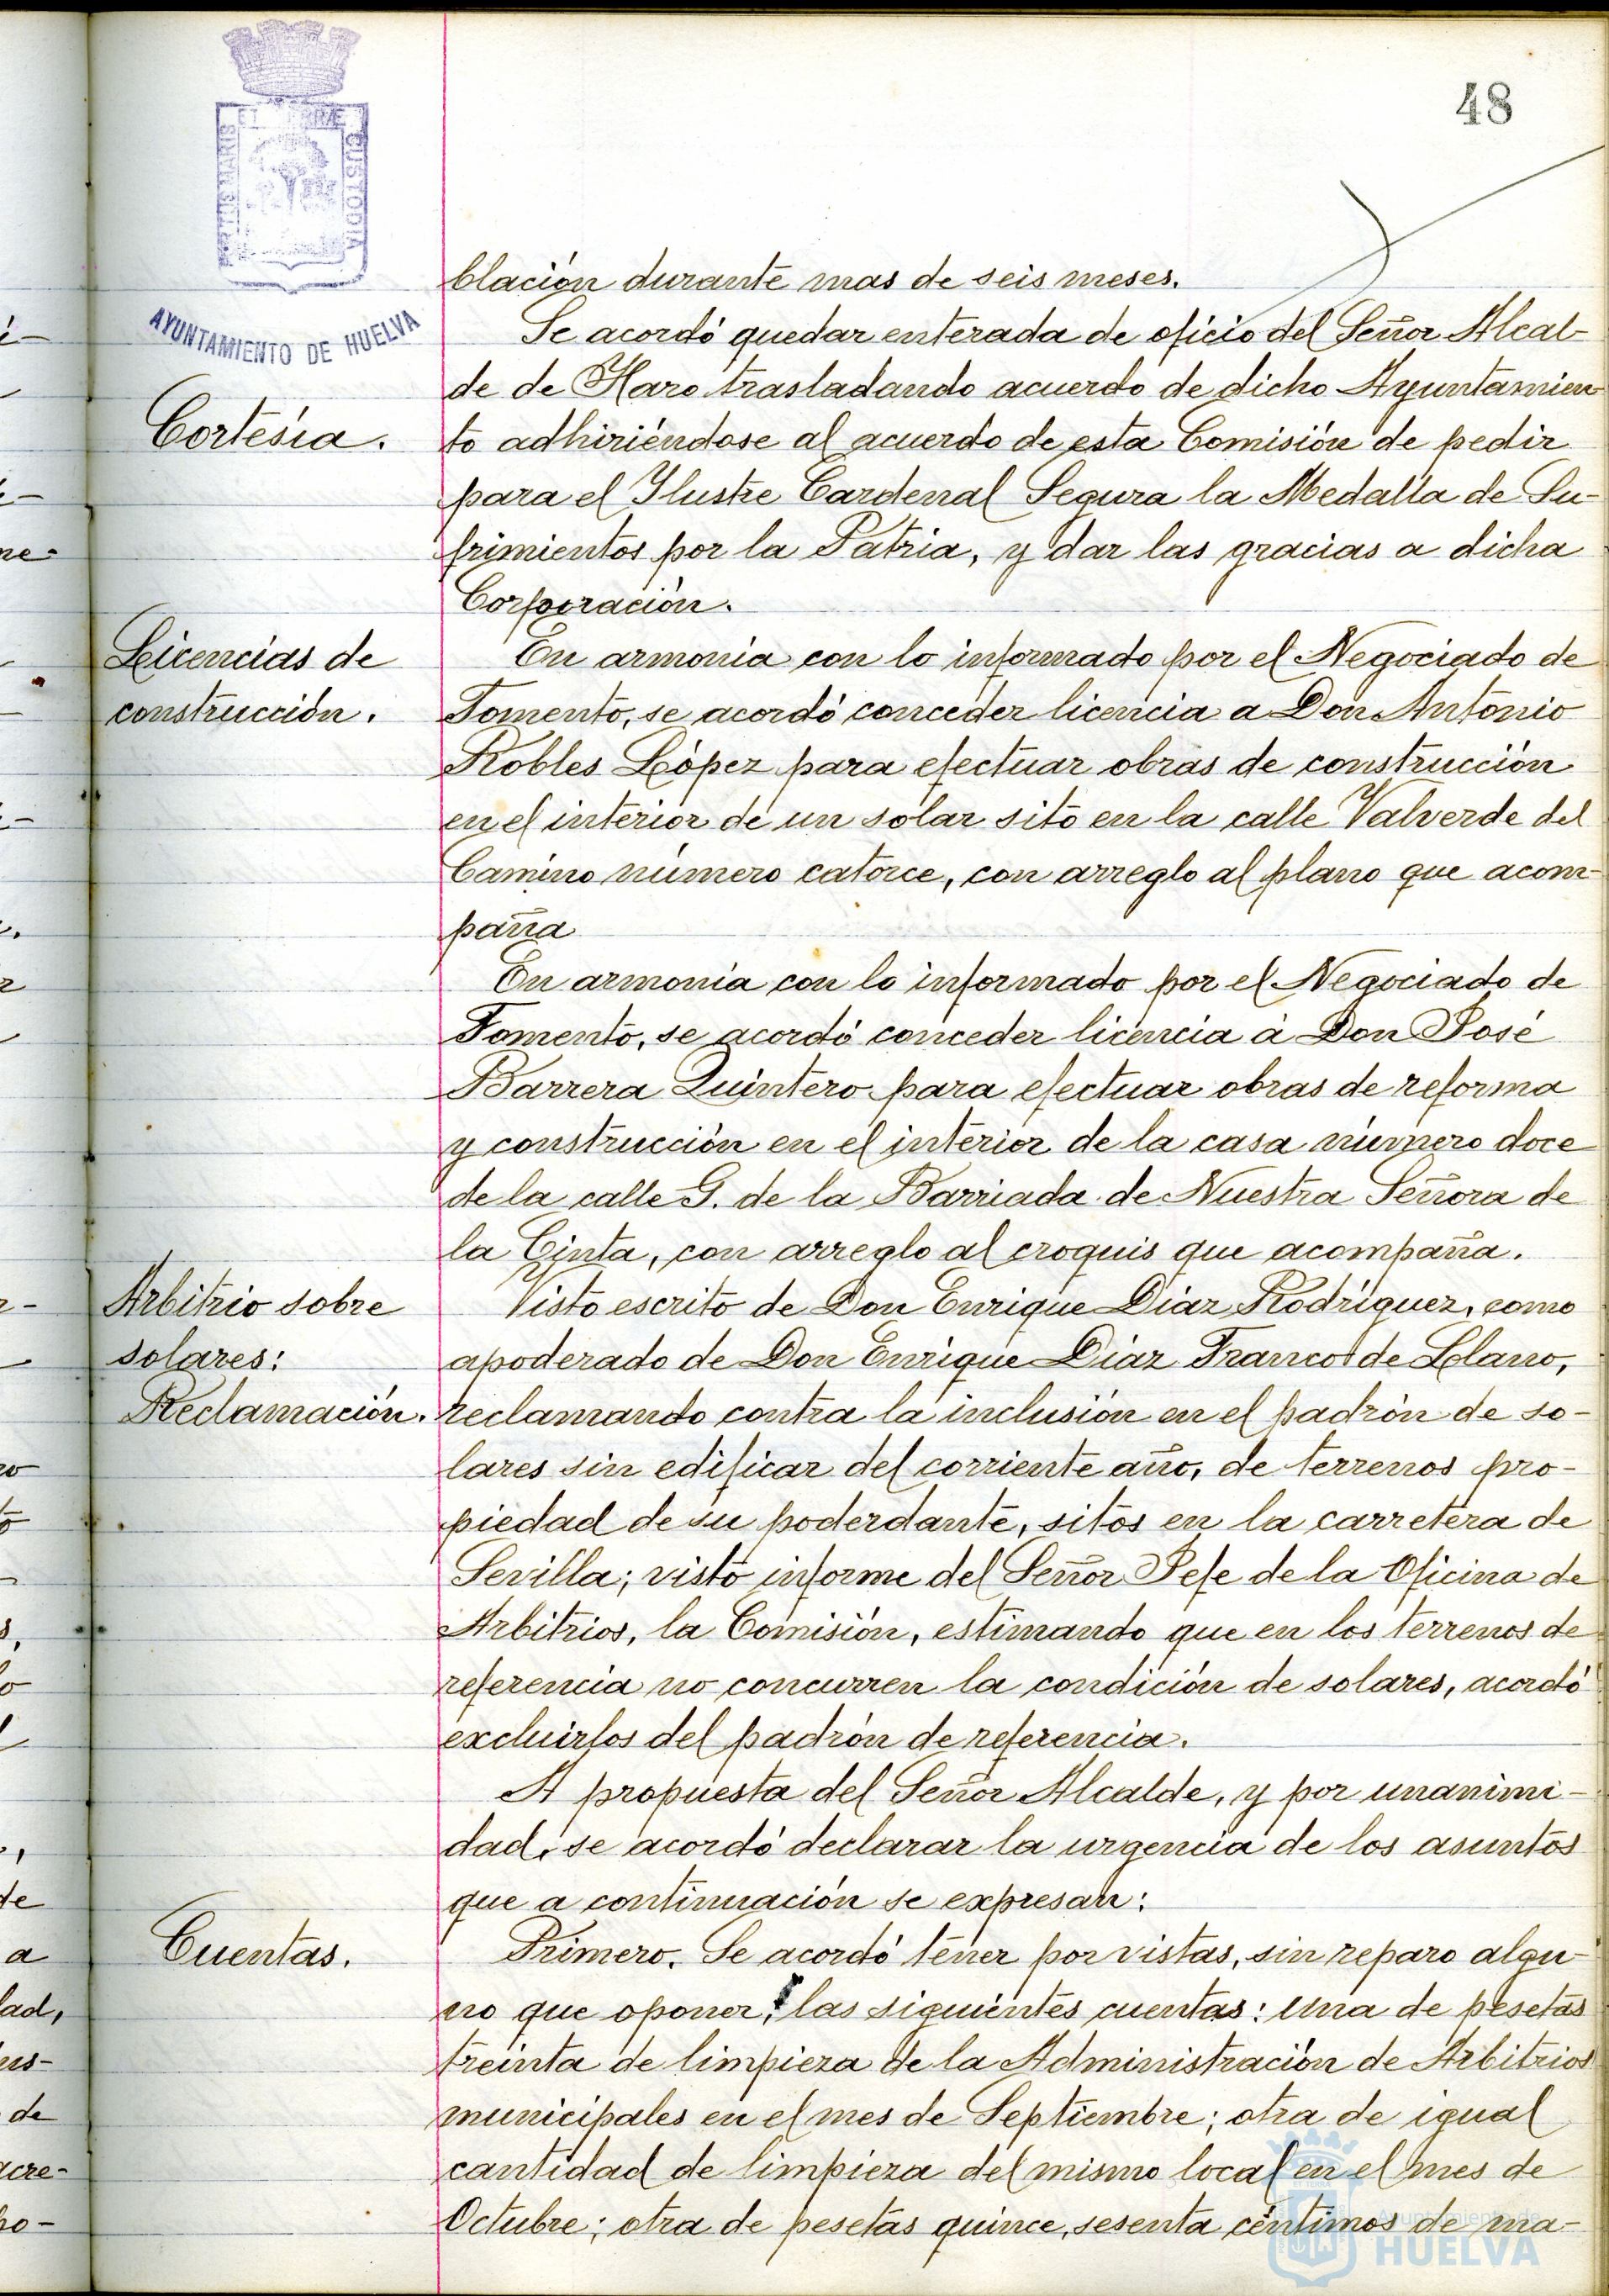 48
PORTUS MARIS ET TERRÆ CUSTODIA
AYUNTAMIENTO DE HUELVA
blación durante mas de seis meses.
Se acordó quedar enterada de oficio del Señor Alcal-
de de Haro trasladando acuerdo de dicho Ayuntamien
Cortesía.
to adhiriéndose al acuerdo de esta Comisión de pedir
para el Ilustre Cardenal Segura la Medalla de Su-
frimientos por la Patria, y dar las gracias a dicha
Corporación.
Licencias de
construcción.
En armonía con lo informado por el Negociado de
Fomento, se acordó conceder licencia a Don Antonio
Robles López para efectuar obras de construcción
en el interior de un solar sito en la calle Valverde del
Camino número catorce, con arreglo al plano que acom-
paña
En armonía con lo informado por el Negociado de
Fomento, se acordó conceder licencia á Don José
Barrera Quintero para efectuar obras de reforma
y construcción en el interior de la casa número doce
de la calle G. de la Barriada de Nuestra Señora de
la Cinta, con arreglo al croquis que acompaña.
Arbitrio sobre
solares:
Reclamación.
Visto escrito de Don Enrique Díaz Rodríguez, como
apoderado de Don Enrique Díaz Franco de Llano,
reclamando contra la inclusión en el padrón de so-
lares sin edificar del corriente año, de terrenos pro-
piedad de su poderdante, sitos en la carretera de
Sevilla; visto informe del Señor Jefe de la Oficina de
Arbitrios, la Comisión, estimando que en los terrenos de
referencia no concurren la condición de solares, acordó
excluirlos del padrón de referencia.
A propuesta del Señor Alcalde, y por unanimi-
dad, se acordó declarar la urgencia de los asuntos
que a continuación se expresan:
Cuentas.
Primero. Se acordó tener por vistas, sin reparo algu-
no que oponer, las siguientes cuentas: Una de pesetas
treinta de limpieza de la Administración de Arbitrios
municipales en el mes de Septiembre; otra de igual
cantidad de limpieza del mismo local en el mes de
Octubre; otra de pesetas quince, sesenta céntimos de ma-
Ayuntamiento de
HUELVA